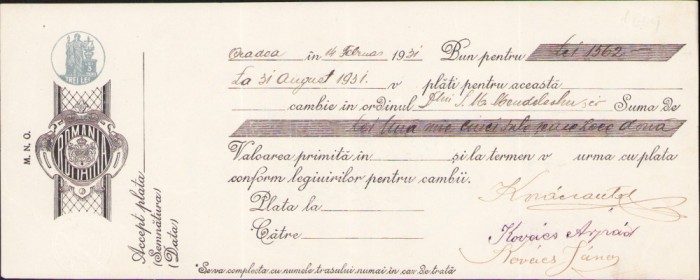 TREI LEI
M. N. O.
ROMANIA
Accept plata
(Semnătura)
(Data)
Oradea în 14 Februar 1931 Bun pentru Lei 1562
La 31 August 1931. v plăti pentru această
cambie în ordinul Dlui S. M. Suma de
Lei Una mie cinci sute
Valoarea primită în și la termen v urma cu plata
conform legiuirilor pentru cambii.
Plata la
Către
Kovács Arpád
Kovács János
*Se va complecta cu numele trasului numai în caz de trată